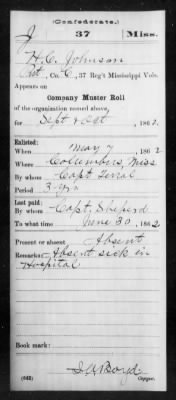 (Confederate.)
J 37 Miss.
H. C. Johnson
Pvt., Co. C, 37 Reg't Mississippi Vols.
Appears on
Company Muster Roll
of the organization named above,
for Sept & Oct, 1862.
Enlisted:
When May 7, 1862
Where Columbus, Miss
By whom Capt Terral
Period 3 yrs
Last paid:
By whom Capt. Sheperd
To what time June 30, 1862
Present or absent Absent
Remarks: Absent sick in
Hospital
Book mark:
(642) J A Boyd
Copyist.